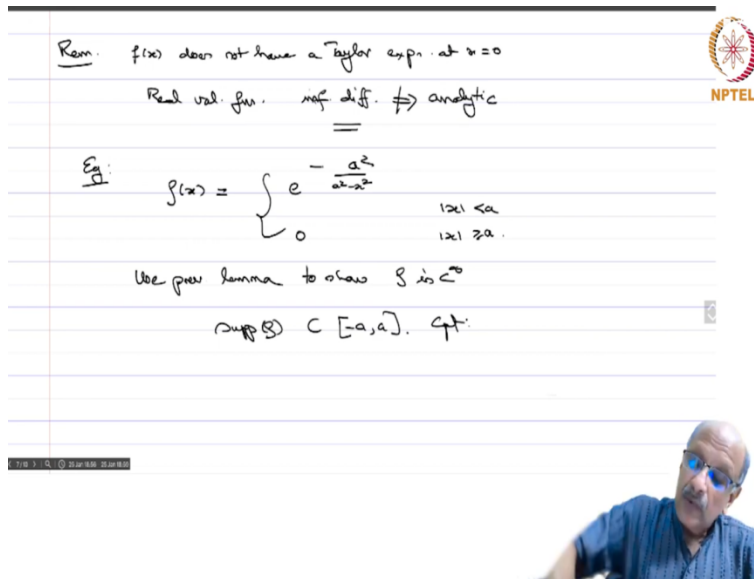 Rem. f(x) does not have a Taylor expn. at x=0
Real val. fns. inf. diff. ⇏ analytic
Eg:
ρ(x) = { e^{- a²/(a²-x²)} |x| < a
0 |x| ≥ a.
Use prev lemma to show ρ is C^∞
supp(ρ) ⊂ [-a,a]. cpt.
NPTEL
7/15